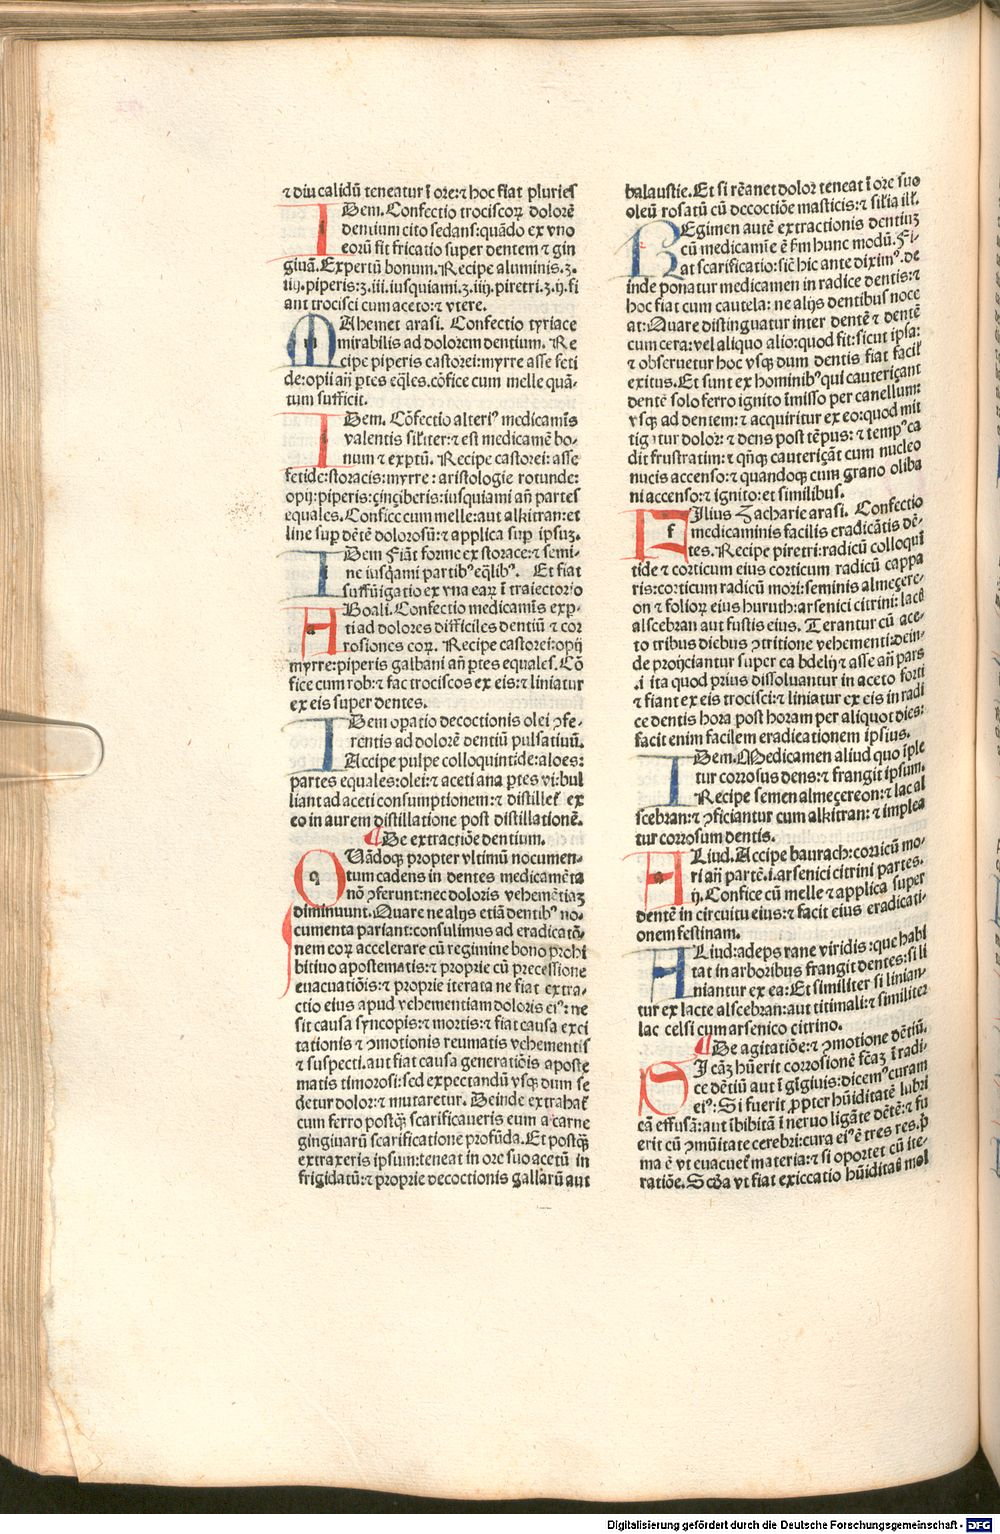 ⁊ diu calidū teneatur ī ore:⁊ hoc fiat pluries
IDem. Confectio trociscoꝝ dolorē
dentium cito sedans: quādo ex vno
eorū fit fricatio super dentem ⁊ gin
giuā. Expertū bonum. Recipe aluminis.ʒ.
iiij.piperis:ʒ.iii.iusquiami.ʒ.iiij.piretri.ʒ.ij.fi
ant trocisci cum aceto:⁊ vtere.
MAhemet arasi. Confectio tyriace
mirabilis ad dolorem dentium. Re
cipe piperis castorei:myrre asse feti
de:opii añ ꝑtes eq̄les.cōfice cum melle quā-
tum sufficit.
IDem. Cōfectio alteriꝰ medicamīs
valentis sil̄iter:⁊ est medicamē bo-
num ⁊ exptū. Recipe castorei: asse
fetide:storacis:myrre: aristologie rotunde:
opij:piperis:çinçiberis:iusquiami añ partes
equales. Confice cum melle:aut alkitran:et
line suꝑ dētē dolorosū:⁊ applica suꝑ ipsuʒ.
IDem Fiāt forme ex storace:⁊ semi-
ne iusq̄ami partibꝰ eq̄libꝰ. Et fiat
suffūigatio ex vna eaꝝ ī traiectorio
ABoali. Confectio medicamīs exp-
ti ad dolores difficiles dentiū ⁊ cor
rosiones coꝝ. Recipe castorei:opij
myrre:piperis galbani añ ꝑtes equales. Cō
fice cum rob:⁊ fac trociscos ex eis:⁊ liniatur
ex eis super dentes.
IDem oꝑatio decoctionis olei ꝯfe-
rentis ad dolorē dentiū pulsatiuū.
Accipe pulpe colloquintide:aloes:
partes equales:olei:⁊ aceti ana ꝑtes vi:bul
liant ad aceti consumptionem:⁊ distilleť ex
eo in aurem distillatione post distillationē.
¶ De extractiōe dentium.
QUādoqꝫ propter vltimū nocumen-
tum cadens in dentes medicamēta
nō ꝯferunt:nec doloris vehemētiaʒ
diminuunt. Quare ne alijs etiā dentibꝰ no-
cumenta pariant:consulimus ad eradicatō-
nem eoꝝ accelerare cū regimine bono prohi
bitiuo apostematis:⁊ proprie cū precessione
euacuatiōis:⁊ proprie iterata ne fiat extra-
ctio eius apud vehementiam doloris eiꝰ: ne
sit causa syncopis:⁊ mortis:⁊ fiat causa exci
tationis ⁊ ꝯmotionis reumatis vehementis
⁊ suspecti.aut fiat causa generatiōis aposte
matis timorosi:sed expectandū vsqꝫ dum se
detur dolor:⁊ mutaretur. Deinde extrahať
cum ferro postq̄ꝫ scarificaueris eum a carne
gingiuarū scarificatione profūda. Et postq̄ꝫ
extraxeris ipsum:teneat in ore suo acetū in
frigidatū:⁊ proprie decoctionis gallarū aut
balaustie. Et si rēanet dolor teneat ī ore suo
oleū rosatū cū decoctiōe masticis:⁊ sil̄ia ill̄.
REgimen autē extractionis dentiuʒ
cū medicamīe ē ẜm hunc modū. Fi-
at scarificatio:siēc̄ hic ante diximꝰ. de
inde ponatur medicamen in radice dentis:⁊
hoc fiat cum cautela: ne alijs dentibus noce
at: Quare distinguatur inter dentē ⁊ dentē
cum cera:vel aliquo alio:quod fit:sicut ipsa:
⁊ obseruetur hoc vsqꝫ dum dentis fiat facil̄
exitus. Et sunt ex hominibꝰ qui cauteriçant
dentē solo ferro ignito īmisso per canellum:
vsqꝫ ad dentem:⁊ acquiritur ex eo:quod mit
tigatur dolor:⁊ dens post tēpus:⁊ tempꝰ ca
dit frustratim:⁊ qn̄qꝫ cauteriçāt cum nucleo
nucis accenso:⁊ quandoqꝫ cum grano oliba
ni accenso:⁊ ignito:et similibus.
FIlius Zacharie arasi. Confectio
medicaminis facilis eradicātis dē-
tes. Recipe piretri:radicū colloquī
tide ⁊ corticum eius corticum radicū cappa
ris:corticum radicū mori:seminis almeçere-
on ⁊ folioꝝ eius huruth:arsenici citrini: lac̄
alscebran aut fustis eius. Terantur cū ace-
to tribus diebus ꝯtritione vehementi:dein-
de proijciantur super ea bdelij ⁊ asse añ pars
.i ita quod prius dissoluantur in aceto forti
⁊ fiant ex eis trocisci:⁊ liniatur ex eis in radi
ce dentis hora post horam per aliquot dies:
facit enim facilem eradicationem ipsius.
IDem. Medicamen aliud quo īple
tur corrosus dens:⁊ frangit ipsum.
Recipe semen almeçereon:⁊ lac al
scebran:⁊ ꝯficiantur cum alkitran: ⁊ implea
tur corrosum dentis.
ALiud. Accipe baurach:corticū mo-
ri añ partē.i.arsenici citrini partes.
ij. Confice cū melle ⁊ applica super
dentē in circuitu eius:⁊ facit eius eradicati-
onem festinam.
ALiud:adeps rane viridis:que habi
tat in arboribus frangit dentes:si li
niantur ex ea: Et similiter si linian-
tur ex lacte alscebran:aut titimali:⁊ similiter
lac celsi cum arsenico citrino.
¶ De agitatiōe:⁊ ꝯmotione dētiū.
SI cāʒ hūerit corrosionē fcāʒ ī radi-
ce dētiū aut ī gīgiuis:dicemꝰ curam
eiꝰ: Si fuerit ꝓpter hūiditatē lubri
cā effusā:aut ībibitā ī neruo ligāte dētē:⁊ fu
erit cū ꝯmūitate cerebri:cura eiꝰ ē tres res.ꝑ
ma ē vt euacueť materia:⁊ si oportet cū ite-
ratiōe. Scďa vt fiat exiccatio hūiditat̄ mol
Digitalisierung gefördert durch die Deutsche Forschungsgemeinschaft - DFG